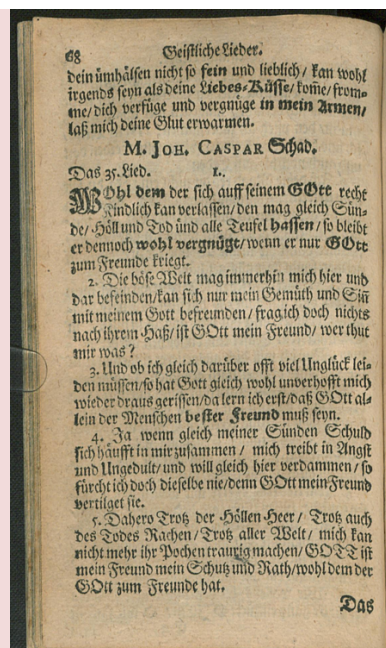 68 Geistliche Lieder.
dein ümhälsen nicht so fein und lieblich/ kan wohl
irgends seyn als deine Liebes-Küsse/ kom̃e/ from-
me/ dich verfüge und vergnüge in mein Armen/
laß mich deine Glut erwarmen.
M. JOH. CASPAR Schad.
Das 35. Lied. 1.
WOhl dem der sich auff seinem GOtt recht
Kindlich kan verlassen/ den mag gleich Sün-
de/ Höll und Tod und alle Teufel hassen/ so bleibt
er dennoch wohl vergnügt/ wenn er nur GOtt
zum Freunde kriegt.
2. Die böse Welt mag immerhin mich hier und
dar befeinden/ kan sich nur mein Gemüth und Siñ
mit meinem Gott befreunden/ frag ich doch nichts
nach ihrem Haß/ ist GOtt mein Freund/ wer thut
mir was?
3. Und ob ich gleich darüber offt viel Unglück lei-
den müssen/ so hat Gott gleich wohl unverhofft mich
wieder draus gerissen/ da lern ich erst/ daß GOtt al-
lein der Menschen bester Freund muß seyn.
4. Ja wenn gleich meiner Sünden Schuld
sich häufft in mir zusammen/ mich treibt in Angst
und Ungedult/ und will gleich hier verdammen/ so
fürcht ich doch dieselbe nie/ denn GOtt mein Freund
vertilget sie.
5. Dahero Trotz der Höllen-Heer/ Trotz auch
des Todes Rachen/ Trotz aller Welt/ mich kan
nicht mehr ihr Pochen traurig machen/ GOTT ist
mein Freund mein Schutz und Rath/ wohl dem der
GOtt zum Freunde hat.
Das